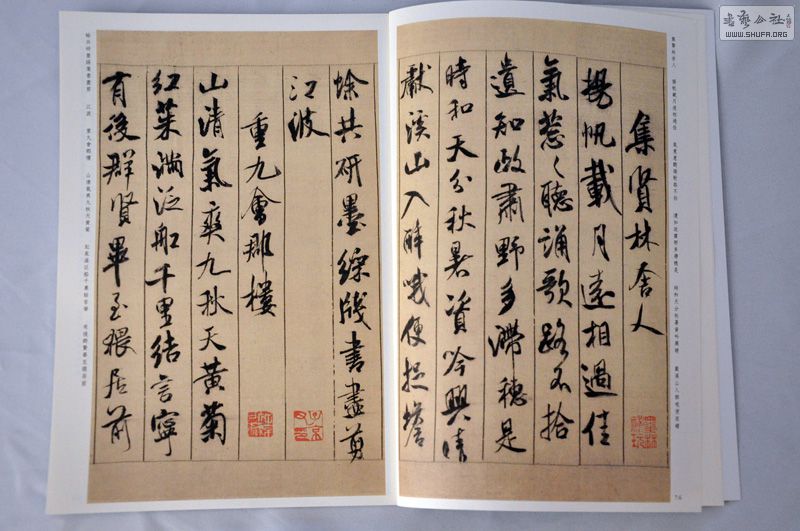 集賢林舍人
揚帆載月遠相過佳
氣葱〻聽誦歌路不拾
遺知政肅野多滯穗是
時和天分秋暑資吟興晴
獻溪山入醉哦便捉蟾
蜍共研墨綵牋書盡剪
江波
重九會郡樓
山清氣爽九秋天黃菊
紅茱滿泛船千里結言寧
有後群賢畢至猥居前
書藝公社
WWW.SHUFA.ORG